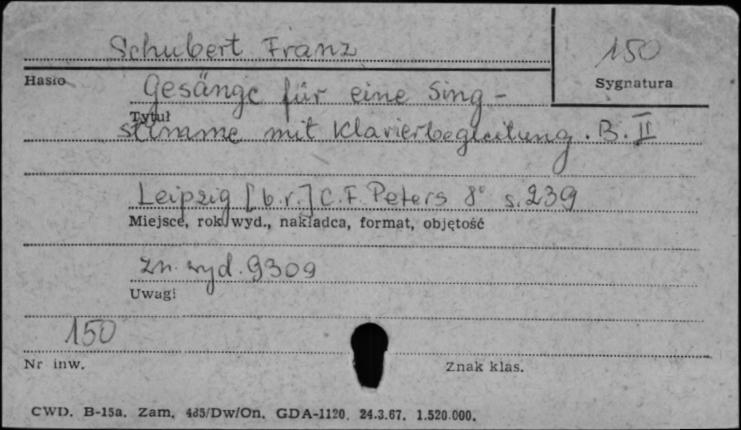 Schubert Franz
150
Hasło
Sygnatura
Gesänge für eine Sing-
Tytuł
stimme mit Klavierbegleitung. B. II
Leipzig [b.r.] C.F. Peters 8° s. 239
Miejsce, rok wyd., nakładca, format, objętość
zn. wyd. 9309
Uwagi
150
Nr inw.
Znak klas.
CWD. B-15a. Zam. 485/Dw/On. GDA-1120. 24.3.67. 1.520.000.